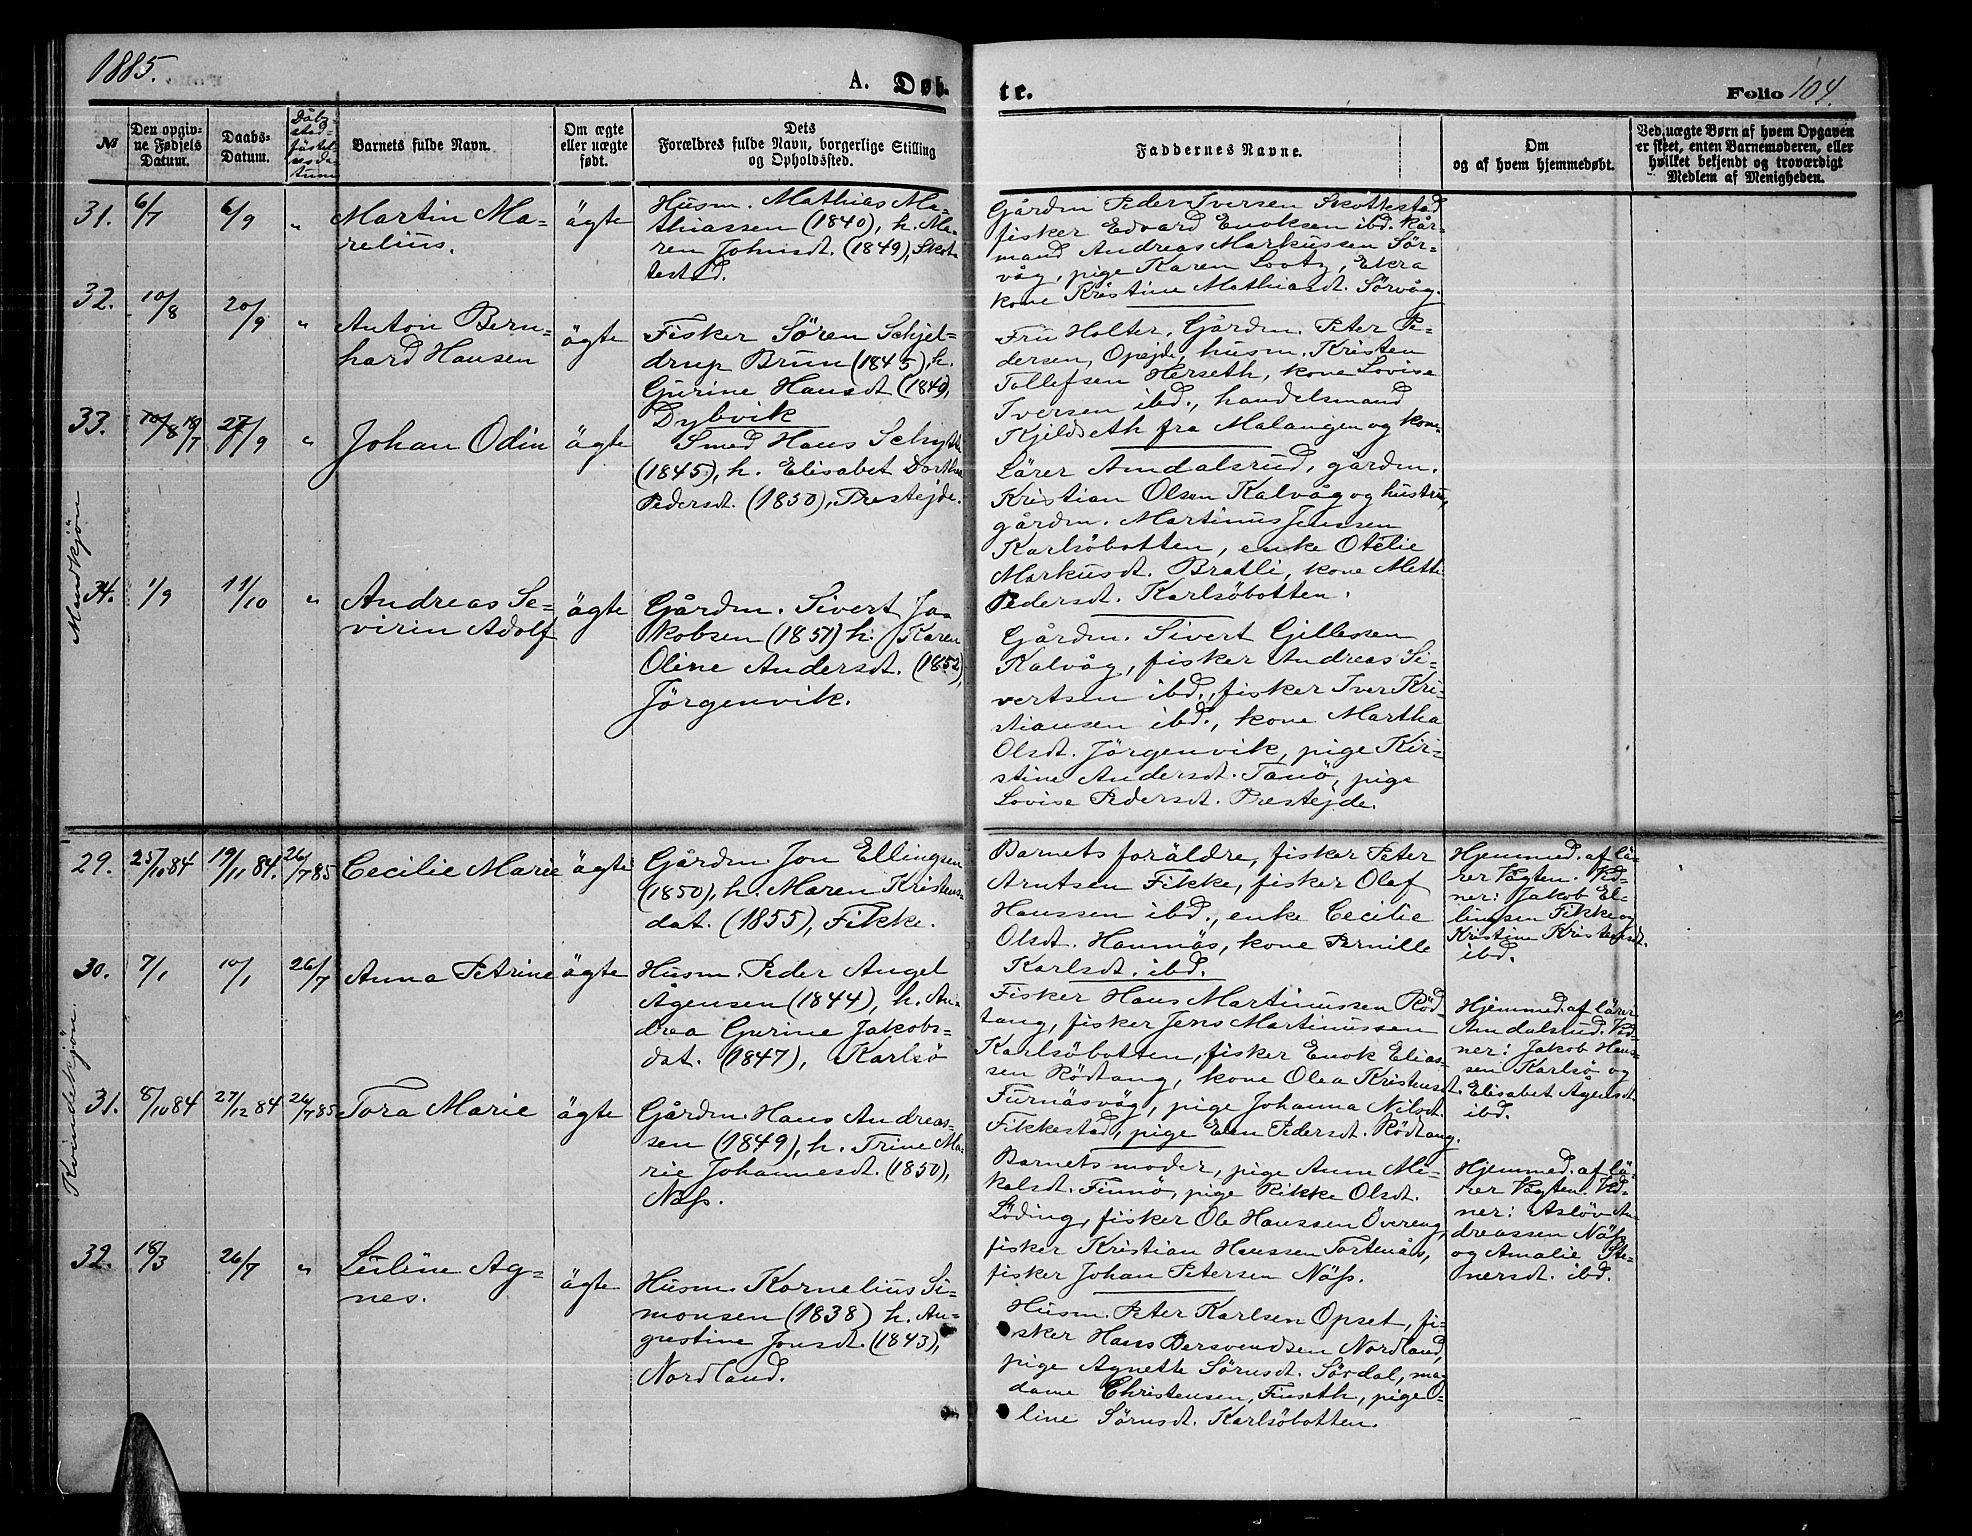 1885.
A. Døb-
te.
Folio 104.
№
Den opgiv-
ne Fødsels
Datum.
Daabs-
Datum.
Dåbs
stad-
fästel
sesda-
tum
Barnets fulde Navn.
Om ægte
eller uægte
født.
Dets
Forældres fulde Navn, borgerlige Stilling
og Opholdssted.
Faddernes Navne.
Om
og af hvem hjemmedøbt.
Ved uægte Børn af hvem Opgaven
er skeet, enten Barnemoderen, eller
hvilket bekjendt og troværdigt
Medlem af Menigheden.
Mandkjön
31. 6/7 6/9 " Martin Ma-
relius.
ägte
Husm. Mathias Ma-
thiassen (1840), h. Ma-
ren Johnsdt. (1849), Skot-
testad.
Gårdm Peder Iversen Skottestad
fisker Edvard Enoksen ibd. kår-
mand Andreas Markussen Sör-
våg, pige Karen Lootz, Ekra
kone Kristine Mathiasdt. Sörvåg.
32. 10/8 20/9 " Anton Bern-
hard Hansen
ägte
Fisker Sören Schjel-
drup Brun (1845), h.
Gurine Hansdt (1840),
Dybvik
Fru Holter, Gårdm. Peter Pe-
dersen, Opejde, husm. Kristen
Tollefsen Herseth, kone Lovise
Iversen ibd., handelsmand
Kjeldseth fra Malangen og kone
33. 10/8 19/7 27/9 " Johan Odin ägte
Smed Hans Schytte
(1845), h. Elisabet Dorthea
Pedersdt. (1850), Prestejde.
Lärer Amdalsrud, gårdm.
Kristian Olsen Kalvåg og hustru,
gårdm. Martinus Jenssen
Karlsöbotten, enke Otelie
Markusdt. Bratli, kone Mette
Pedersdt. Karlsöbotten.
34. 1/9 11/10 " Andreas Se-
virin Adolf
ägte
Gårdm. Sivert Ja-
kobsen (1851) h. Karen
Oline Andersdt. (1852),
Jörgenvik.
Gårdm. Sivert Gjillessen
Kalvåg, fisker Andreas Si-
vertsen ibd., fisker Iver Kri-
stiansen ibd., kone Martha
Olsdt. Jörgenvik, pige Kir-
stine Andersdt. Tanö, pige
Lovise Pedersdt. Prestejde.
Kvindekjön.
29. 25/10 84 19/11 84. 26/7 85 Cecilie Marie ägte
Gårdm. Jon Ellingsen
(1850), h. Maren Kristens-
dat. (1855), Fikke.
Barnets foräldre, fisker Peter
Arntsen Fikke, fisker Olaf
Hanssen ibd., enke Cecilie
Olsdt. Hamnäs, kone Pernille
Karlsdt. ibd.
Hjemmed. af lä-
rer Vogten. Vid-
ner: Jakob El-
lingsen Fikke og
Kristine Kristensdt.
ibd.
30. 7/1 10/1 26/7 Anna Petrine ägte
Husm. Peder Angel
Ågensen (1844), h. An-
drea Gurine Jakobs-
dat. (1847), Karlsö
Fisker Hans Martinussen Röd-
tang, fisker Jens Martinussen
Karlsöbotten, fisker Enok Elias-
sen Rödtang, kone Olea Kristensdt.
Furnäsvåg, pige Johanna Nilsdt.
Fikkestad, pige Elen Pedersdt. Rödtang.
Hjemmed. af lärer
Amdalsrud. Vid-
ner: Jakob Hans-
sen Karlsö og
Elisabet Ågensdt.
ibd.
31. 8/10 84 27/12 84 26/7 85 Tora Marie ägte
Gårdm. Hans Andreas-
sen (1849), h. Trine Ma-
rie Johannesdt. (1850),
Näss.
Barnets moder, pige Anne Mi-
kelsdt. Finnö, pige Rikke Olsdt.
Löding, fisker Ole Hanssen Övereng,
fisker Kristian Hanssen Tortenås,
fisker Johan Petersen Näss.
Hjemmed. af lä-
rer Vogten. Vid-
ner: Aslöv An-
dreassen Näss
og Amalie Ste-
nersdt. ibd.
32. 18/3 26/7 " Leiline Ag-
nes.
ägte
Husm. Kornelius Si-
monsen (1838) h. Au-
gustine Jonsdt. (1843),
Nordland.
Husm. Peter Karlsen Opset, fi-
sker Hans Bersvendsen Nordland,
pige Agnette Sörnsdt. Sördal, ma-
dame Christensen, Finseth, pige O-
line Sörnsdt. Karlsöbotten.